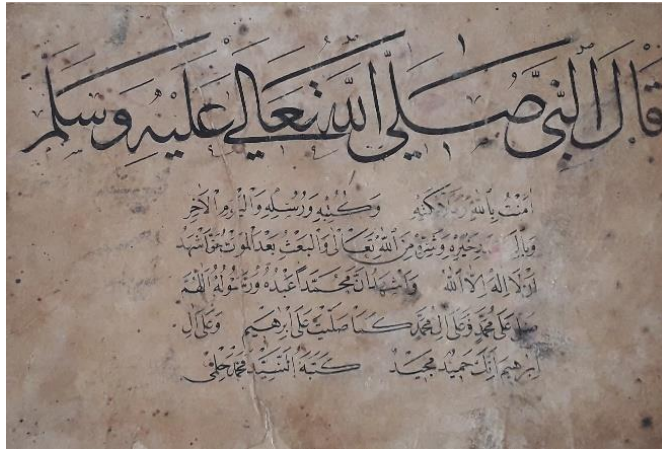 قال النبي صلى الله تعالى عليه وسلم
امنت بالله وملائكته وكتبه ورسله واليوم الاخر
وبالقدر خيره وشره من الله تعالى والبعث بعد الموت حق اشهد
ان لا اله الا الله واشهد ان محمدا عبده ورسوله اللهم
صل على محمد وعلى ال محمد كما صليت على ابرهيم وعلى ال
ابرهيم انك حميد مجيد كتبه السيد محمد حلمي